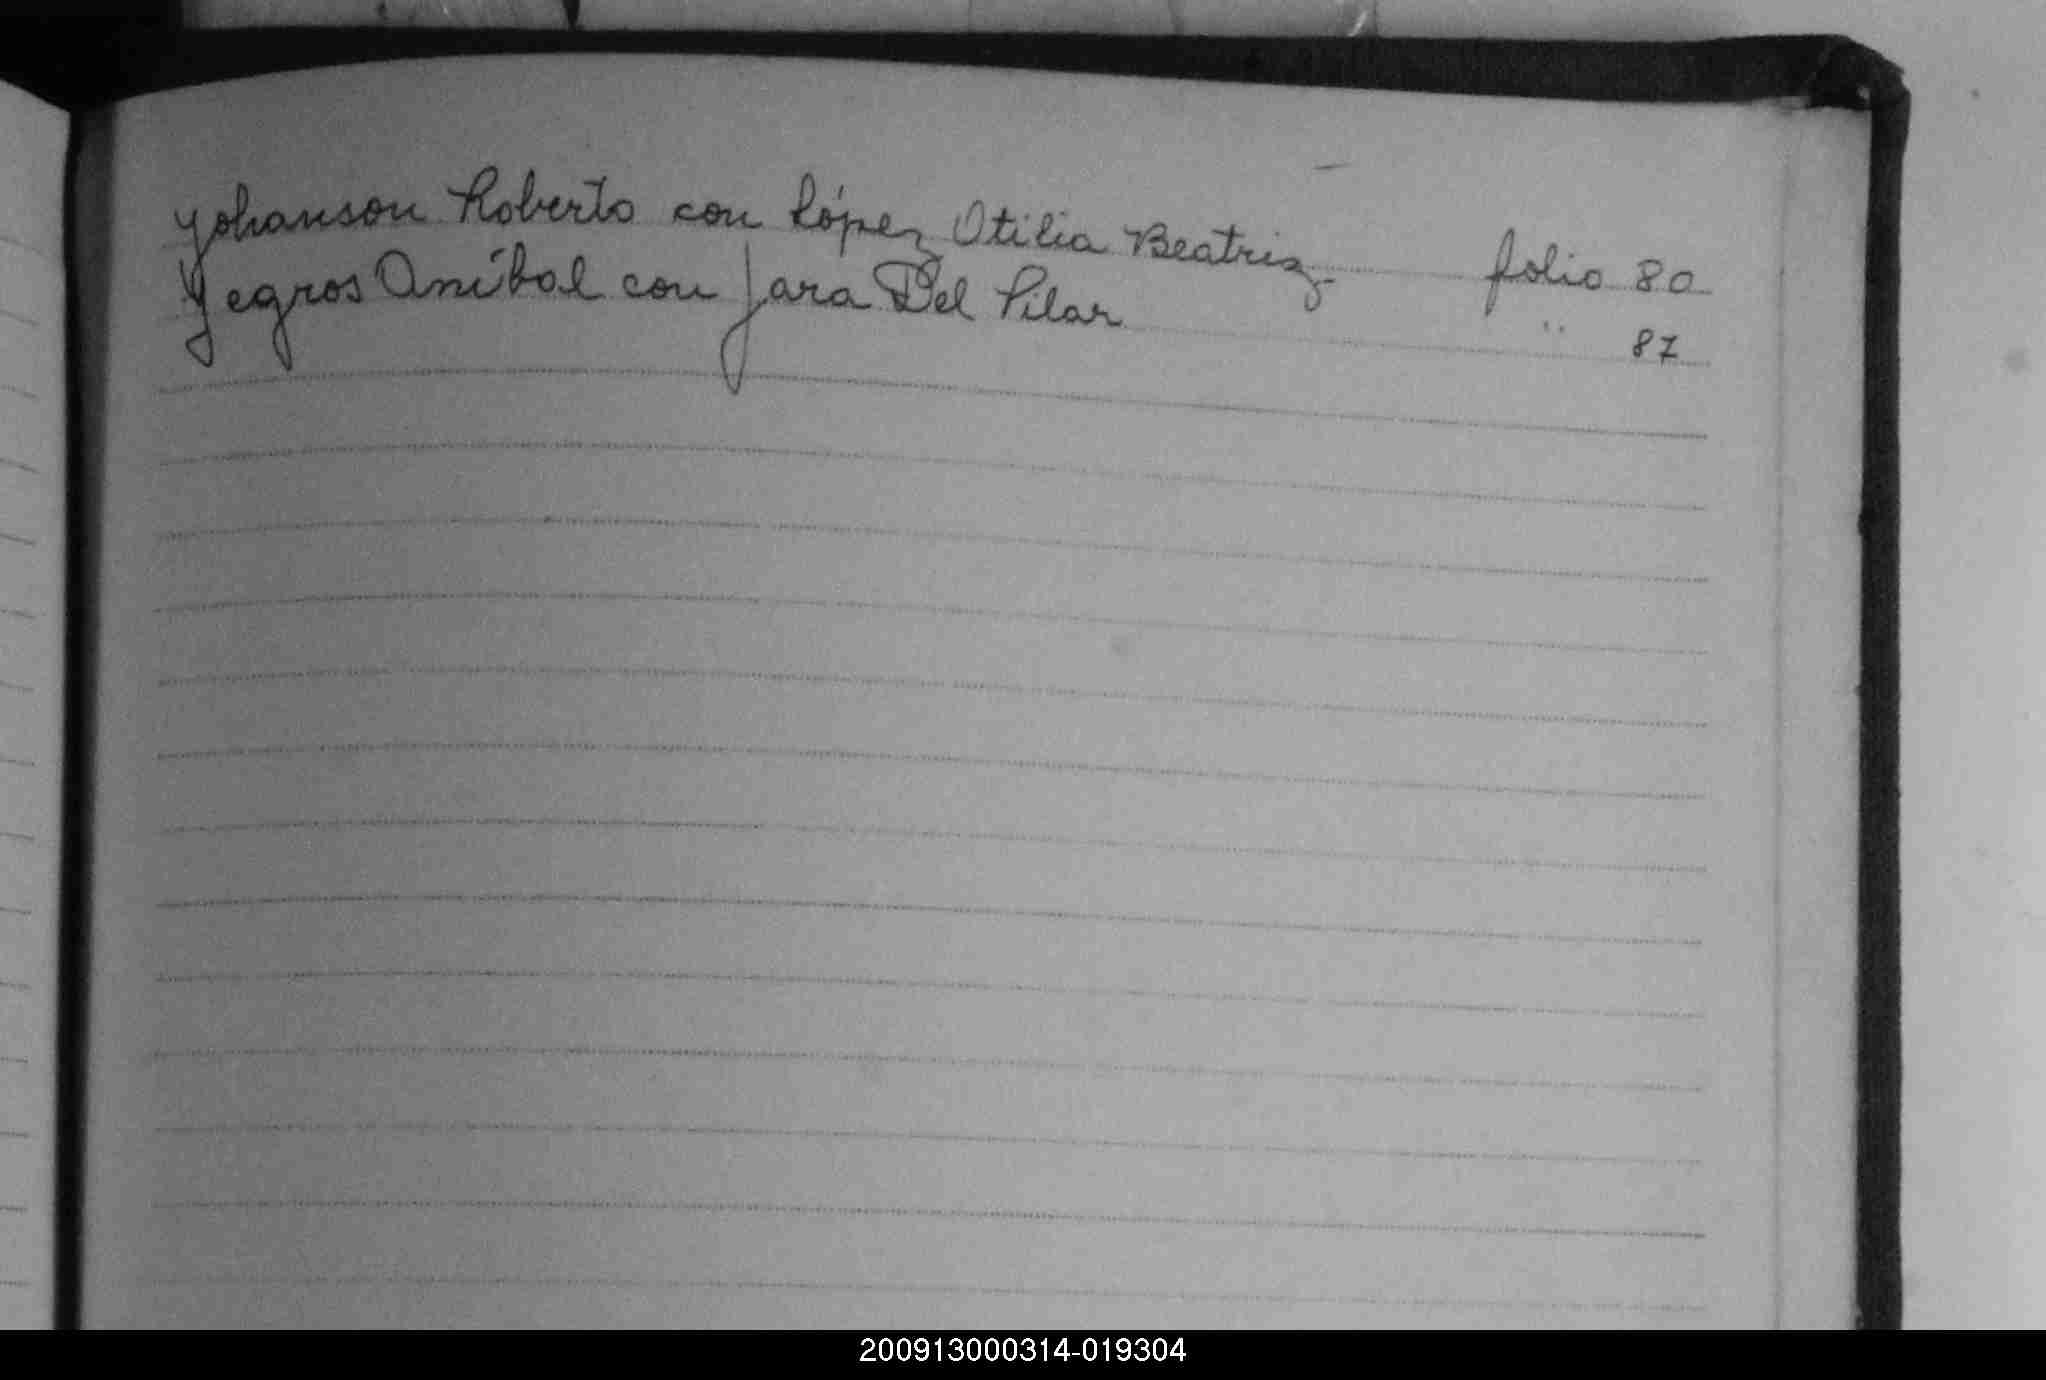 Yohanson Roberto con López Otilia Beatriz folio 80
Yegros Aníbal con Jara Del Pilar " 87
200913000314-019304